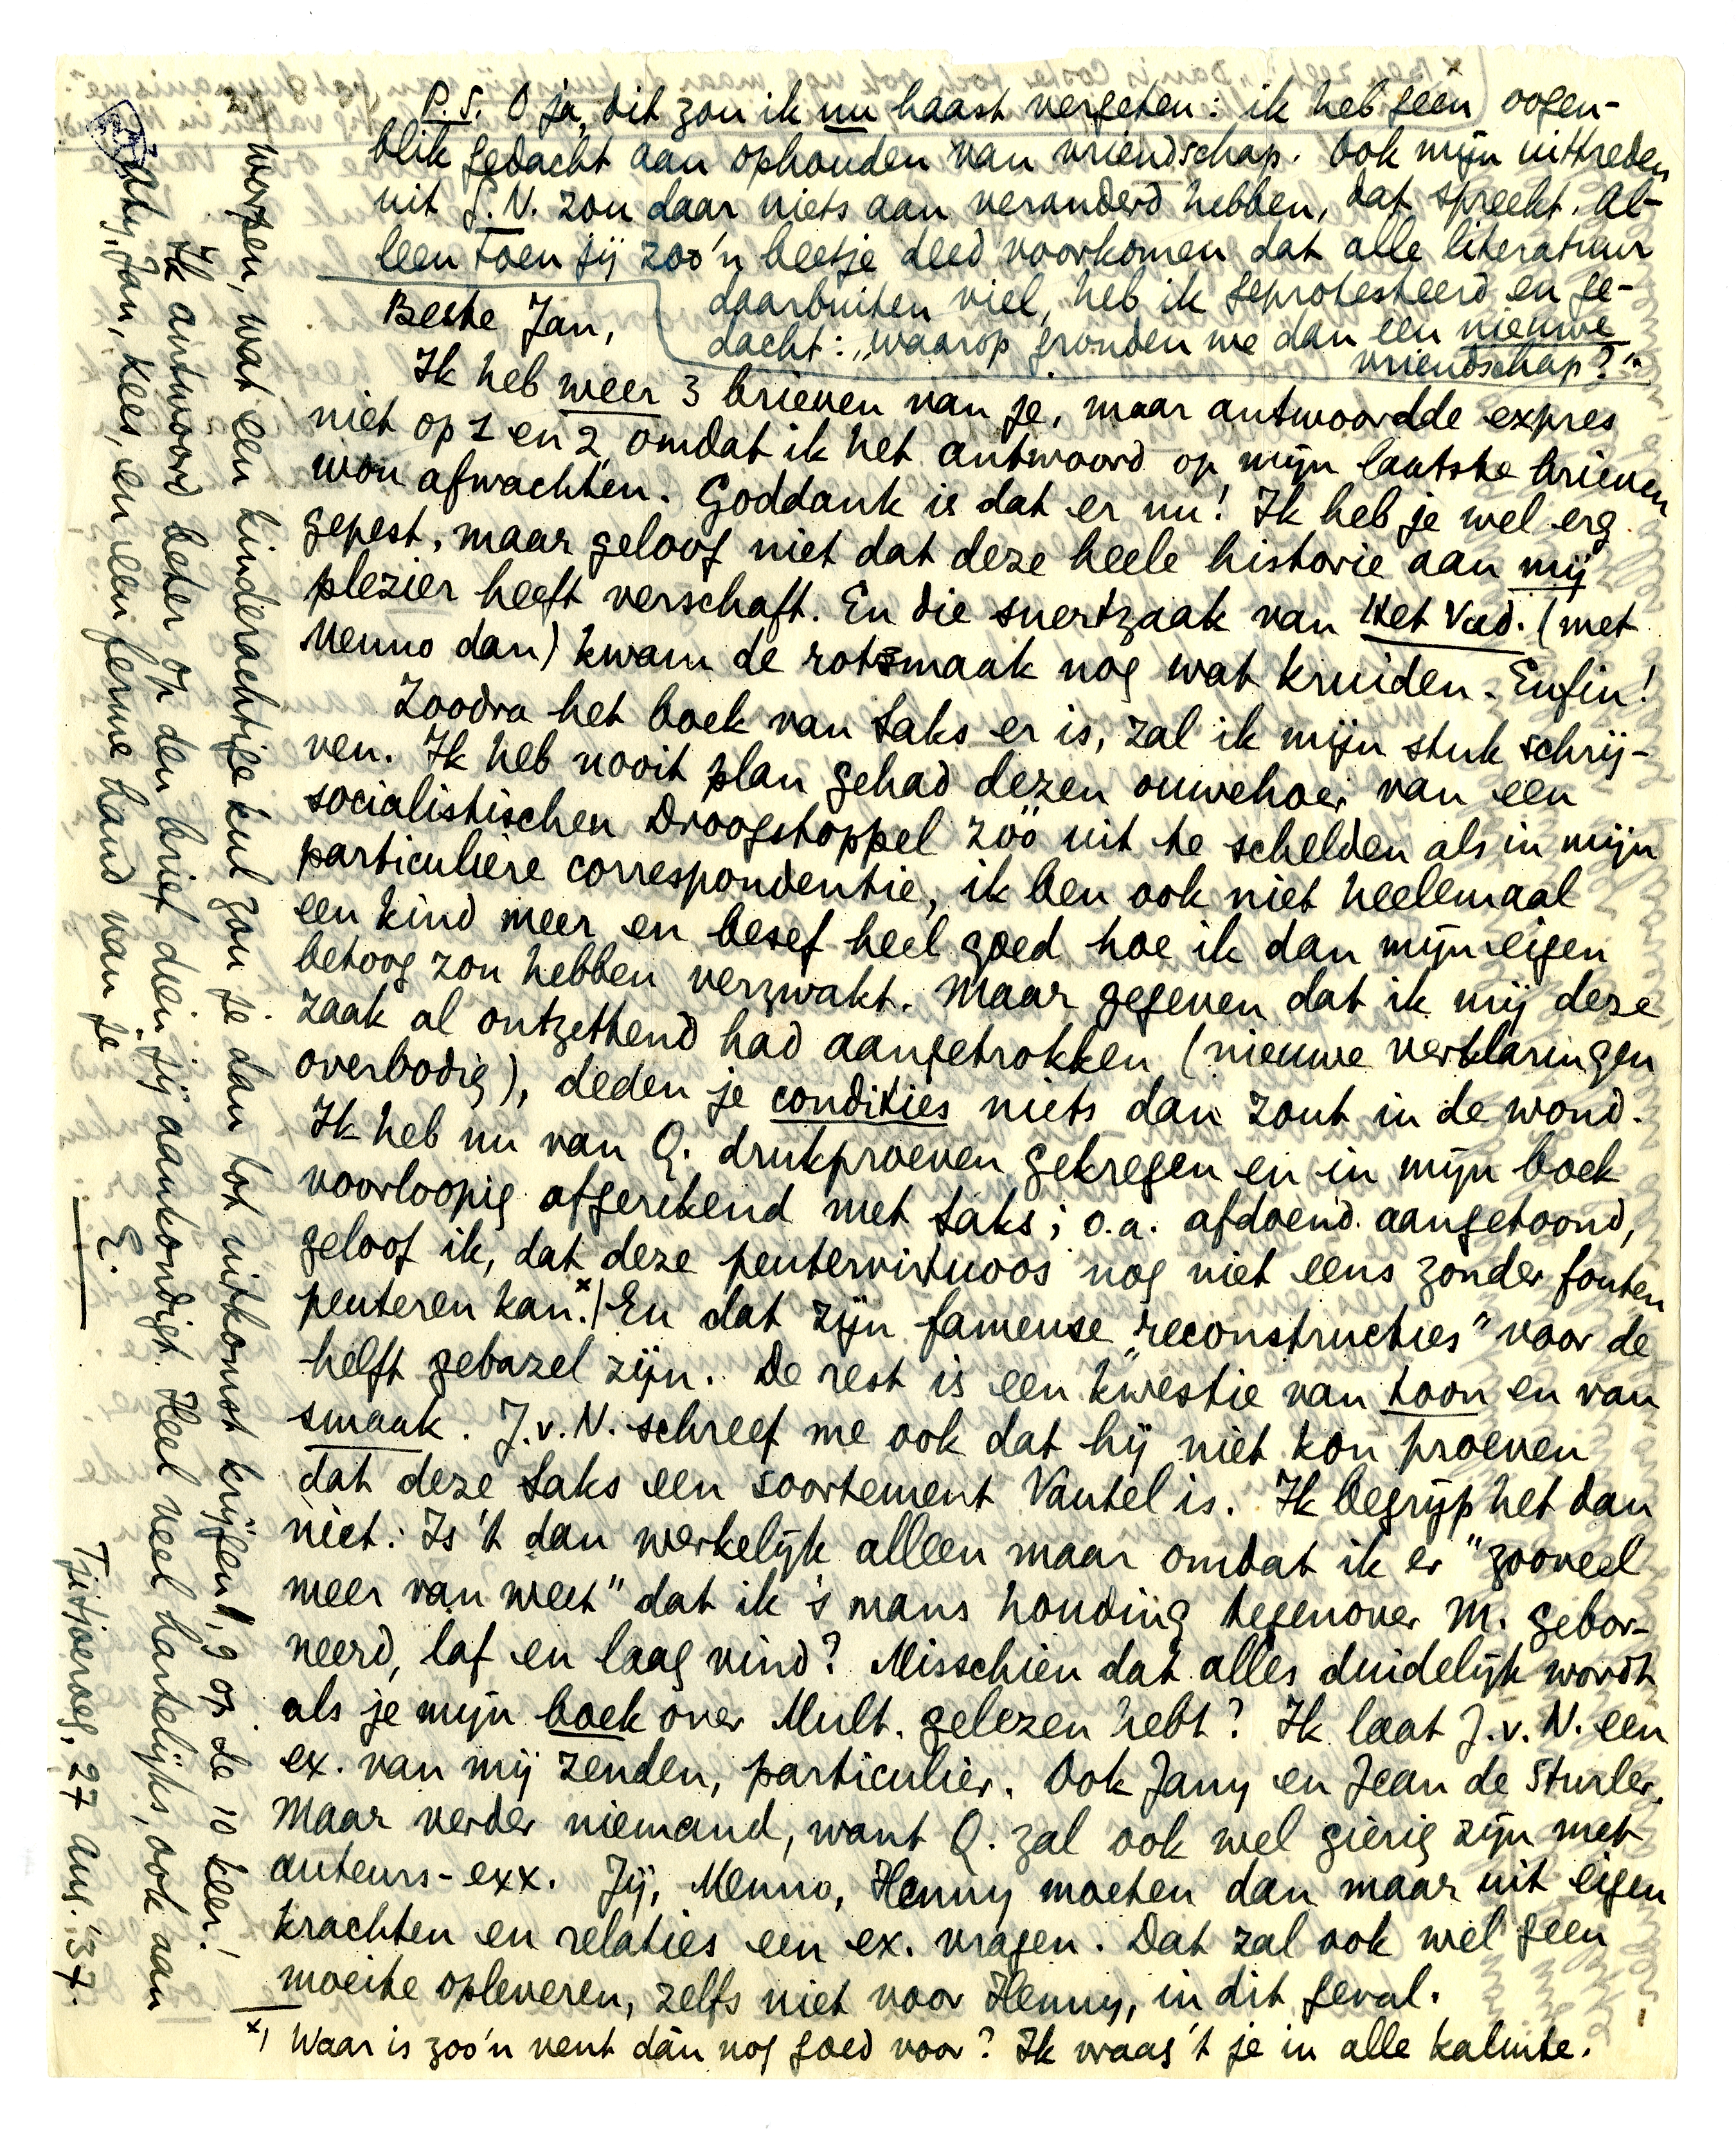 P.S. O ja, dit zou ik nu haast vergeten: ik heb geen oogen-
blik gedacht aan ophouden van vriendschap. Ook mijn uittreden
uit G.N. zou daar niets aan veranderd hebben, dat spreekt. Al-
leen toen jij zoo'n beetje deed voorkomen dat alle literatuur
daarbuiten viel, heb ik geprotesteerd en ge-
dacht: „waarop gronden we dan een nieuwe
vriendschap?"
Beste Jan,
Ik heb weer 3 brieven van je, maar antwoordde expres
niet op 1 en 2, omdat ik het antwoord op mijn laatste brieven
wou afwachten. Goddank is dat er nu! Ik heb je wel erg
gepest, maar geloof niet dat deze heele historie aan mij
plezier heeft verschaft. En die snertzaak van Het Vad. (met
Menno dan) kwam de rotsmaak nog wat kruiden. Enfin!
Zoodra het boek van Saks er is, zal ik mijn stuk schrij-
ven. Ik heb nooit plan gehad dezen ouwehoer van een
socialistischen Droogstoppel zóó uit te schelden als in mijn
particuliere correspondentie, ik ben ook niet heelemaal
een kind meer en besef heel goed hoe ik dan mijn eigen
betoog zou hebben verzwakt. Maar gegeven dat ik mij deze
zaak al ontzettend had aangetrokken (nieuwe verklaringen
overbodig), deden je condities niets dan zout in de wond.
Ik heb nu van Q. drukproeven gekregen en in mijn boek
voorloopig afgerekend met Saks; o.a. afdoend aangetoond,
geloof ik, dat deze peutervirtuoos nog niet eens zonder fouten
peuteren kan.x) En dat zijn fameuse „reconstructies" voor de
helft gebazel zijn. De rest is een kwestie van toon en van
smaak. J.v.N. schreef me ook dat hij niet kon proeven
dat deze Saks een soortement Vautel is. Ik begrijp het dan
niet: Is 't dan werkelijk alleen maar omdat ik er "zooveel
meer van weet" dat ik 's mans houding tegenover M. gebor-
neerd, laf en laag vind? Misschien dat alles duidelijk wordt
als je mijn boek over Mult. gelezen hebt? Ik laat J.v.N. een
ex. van mij zenden, particulier. Ook Jany en Jean de Sturler.
Maar verder niemand, want Q. zal ook wel gierig zijn met
auteurs-exx. Jij, Menno, Henny moeten dan maar uit eigen
krachten en relaties een ex. vragen. Dat zal ook wel geen
moeite opleveren, zelfs niet voor Henny, in dit geval.
x) Waar is zoo'n vent dán nog goed voor? Ik vraag 't je in alle kalmte.
worpen, wat een kinderachtige kul zou je dan tot uitkomst krijgen, 9 op de 10 keer!
Ik antwoord beter op den brief dien jij aankondigt. Heel veel hartelijks, ook aan
Jan, Kees, en een ferme hand van je
E.
Tjitjoeroeg, 27 Aug. '37.